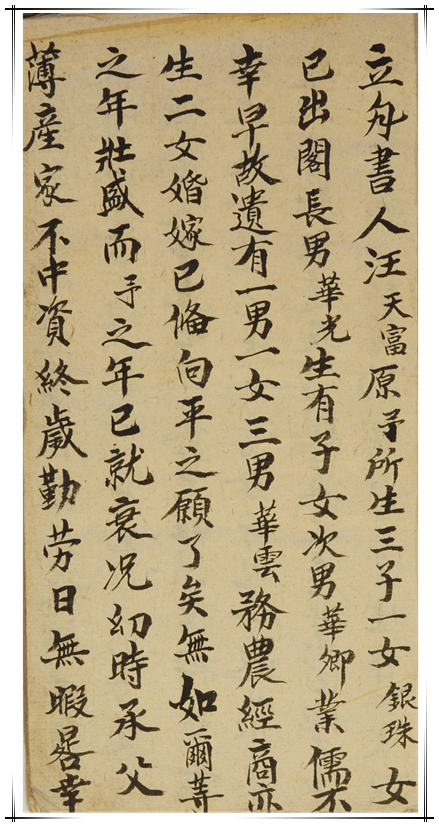 立分書人汪天富原予所生三子一女銀珠女
已出閣長男華光生有子女次男華卿業儒不
幸早故遺有一男一女三男華雲務農經商亦
生二女婚嫁已俻向平之願了矣無如爾等
之年壯盛而予之年已就衰况幼時承父
薄產家不中資終歲勤劳日無暇晷幸